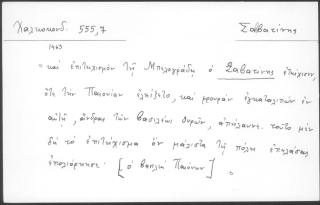 Χαλκοκονδ. 555,7 Σαβατίνης
1463
"καὶ ἐπιτειχισμὸν τῇ Μπελογράδῃ ὁ Σαβατίνης ἐτείχισεν,
ὅτε τὴν Παιονίαν ἐληΐζετο, καὶ φρουρὰν ἐγκαταλιπὼν ἐν
αὐτῇ, ἄνδρας τῶν βασιλέως θυρῶν, ἀπήλαυνε. τοῦτο μὲν
δὴ τὸ ἐπιτείχισμα ὃν μάλιστα τῇ πόλει ἐπελάσας
ἐπολιόρκησε. [ὁ βασιλεὺς Παιόνων]